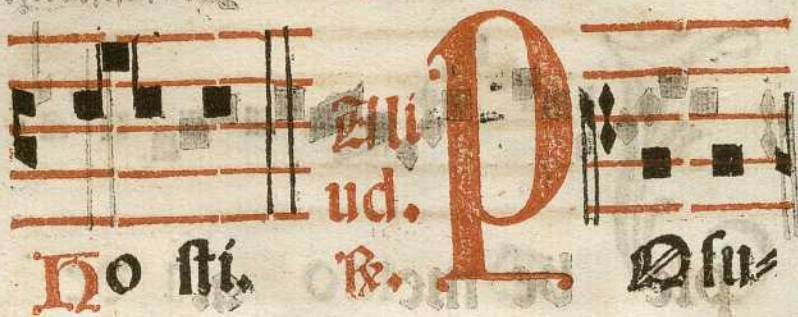 Ho sti.
Ali
ud.
℟.
P Osu⸗